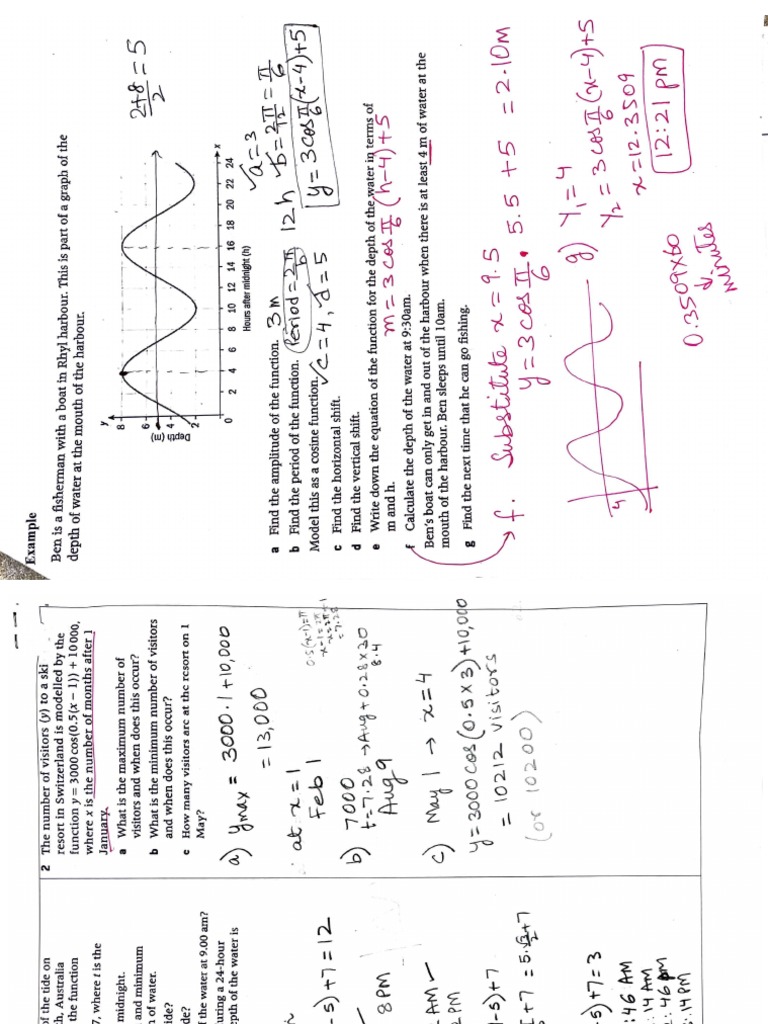 Example
Ben is a fisherman with a boat in Rhyl harbour. This is part of a graph of the
depth of water at the mouth of the harbour.
y
Depth (m)
8
6
4
2
0
2 4 6 8 10 12 14 16 18 20 22 24
x
Hours after midnight (h)
2+8/2 = 5
a Find the amplitude of the function. 3m
b Find the period of the function. Period = 2π/b 12h
✓a=3
✓b = 2π/12 = π/6
Model this as a cosine function.
✓c=4, ✓d=5
y = 3cos π/6 (x-4)+5
c Find the horizontal shift.
d Find the vertical shift.
e Write down the equation of the function for the depth of the water in terms of
m and h.
m = 3 cos π/6 (h-4)+5
f Calculate the depth of the water at 9:30am.
Ben's boat can only get in and out of the harbour when there is at least 4 m of water at the
mouth of the harbour. Ben sleeps until 10am.
g Find the next time that he can go fishing.
f. Substitute x = 9.5
y = 3 cos π/6 . 5.5 + 5 = 2.10m
4
g) Y1 = 4
Y2 = 3 cos π/6 (x-4)+5
x = 12.3509
12:21 pm
0.3509x60
↓
minutes
2 The number of visitors (y) to a ski
resort in Switzerland is modelled by the
function y = 3000 cos(0.5(x − 1)) + 10 000,
where x is the number of months after 1
January.
a What is the maximum number of
visitors and when does this occur?
b What is the minimum number of visitors
and when does this occur?
c How many visitors are at the resort on 1
May?
a) ymax = 3000.1+10,000
= 13,000
at x=1
Feb 1
0.5(x-1)=π
x-1=2π
x=2π+1
=7.28
b) 7000
t=7.28 → Aug + 0.28x30
8.4
Aug 9
c) May 1 → x=4
y=3000cos(0.5x3)+10,000
= 10212 visitors
(or 10200)
of the tide on
h, Australia
the function
7, where t is the
midnight.
and minimum
n of water.
ide?
de?
f the water at 9.00 am?
uring a 24-hour
epth of the water is
-5)+7=12
8PM
AM
2PM
-5)+7
+7 = 5.√3/2+7
5)+7=3
:46 AM
:14 AM
:46 PM
:14 PM